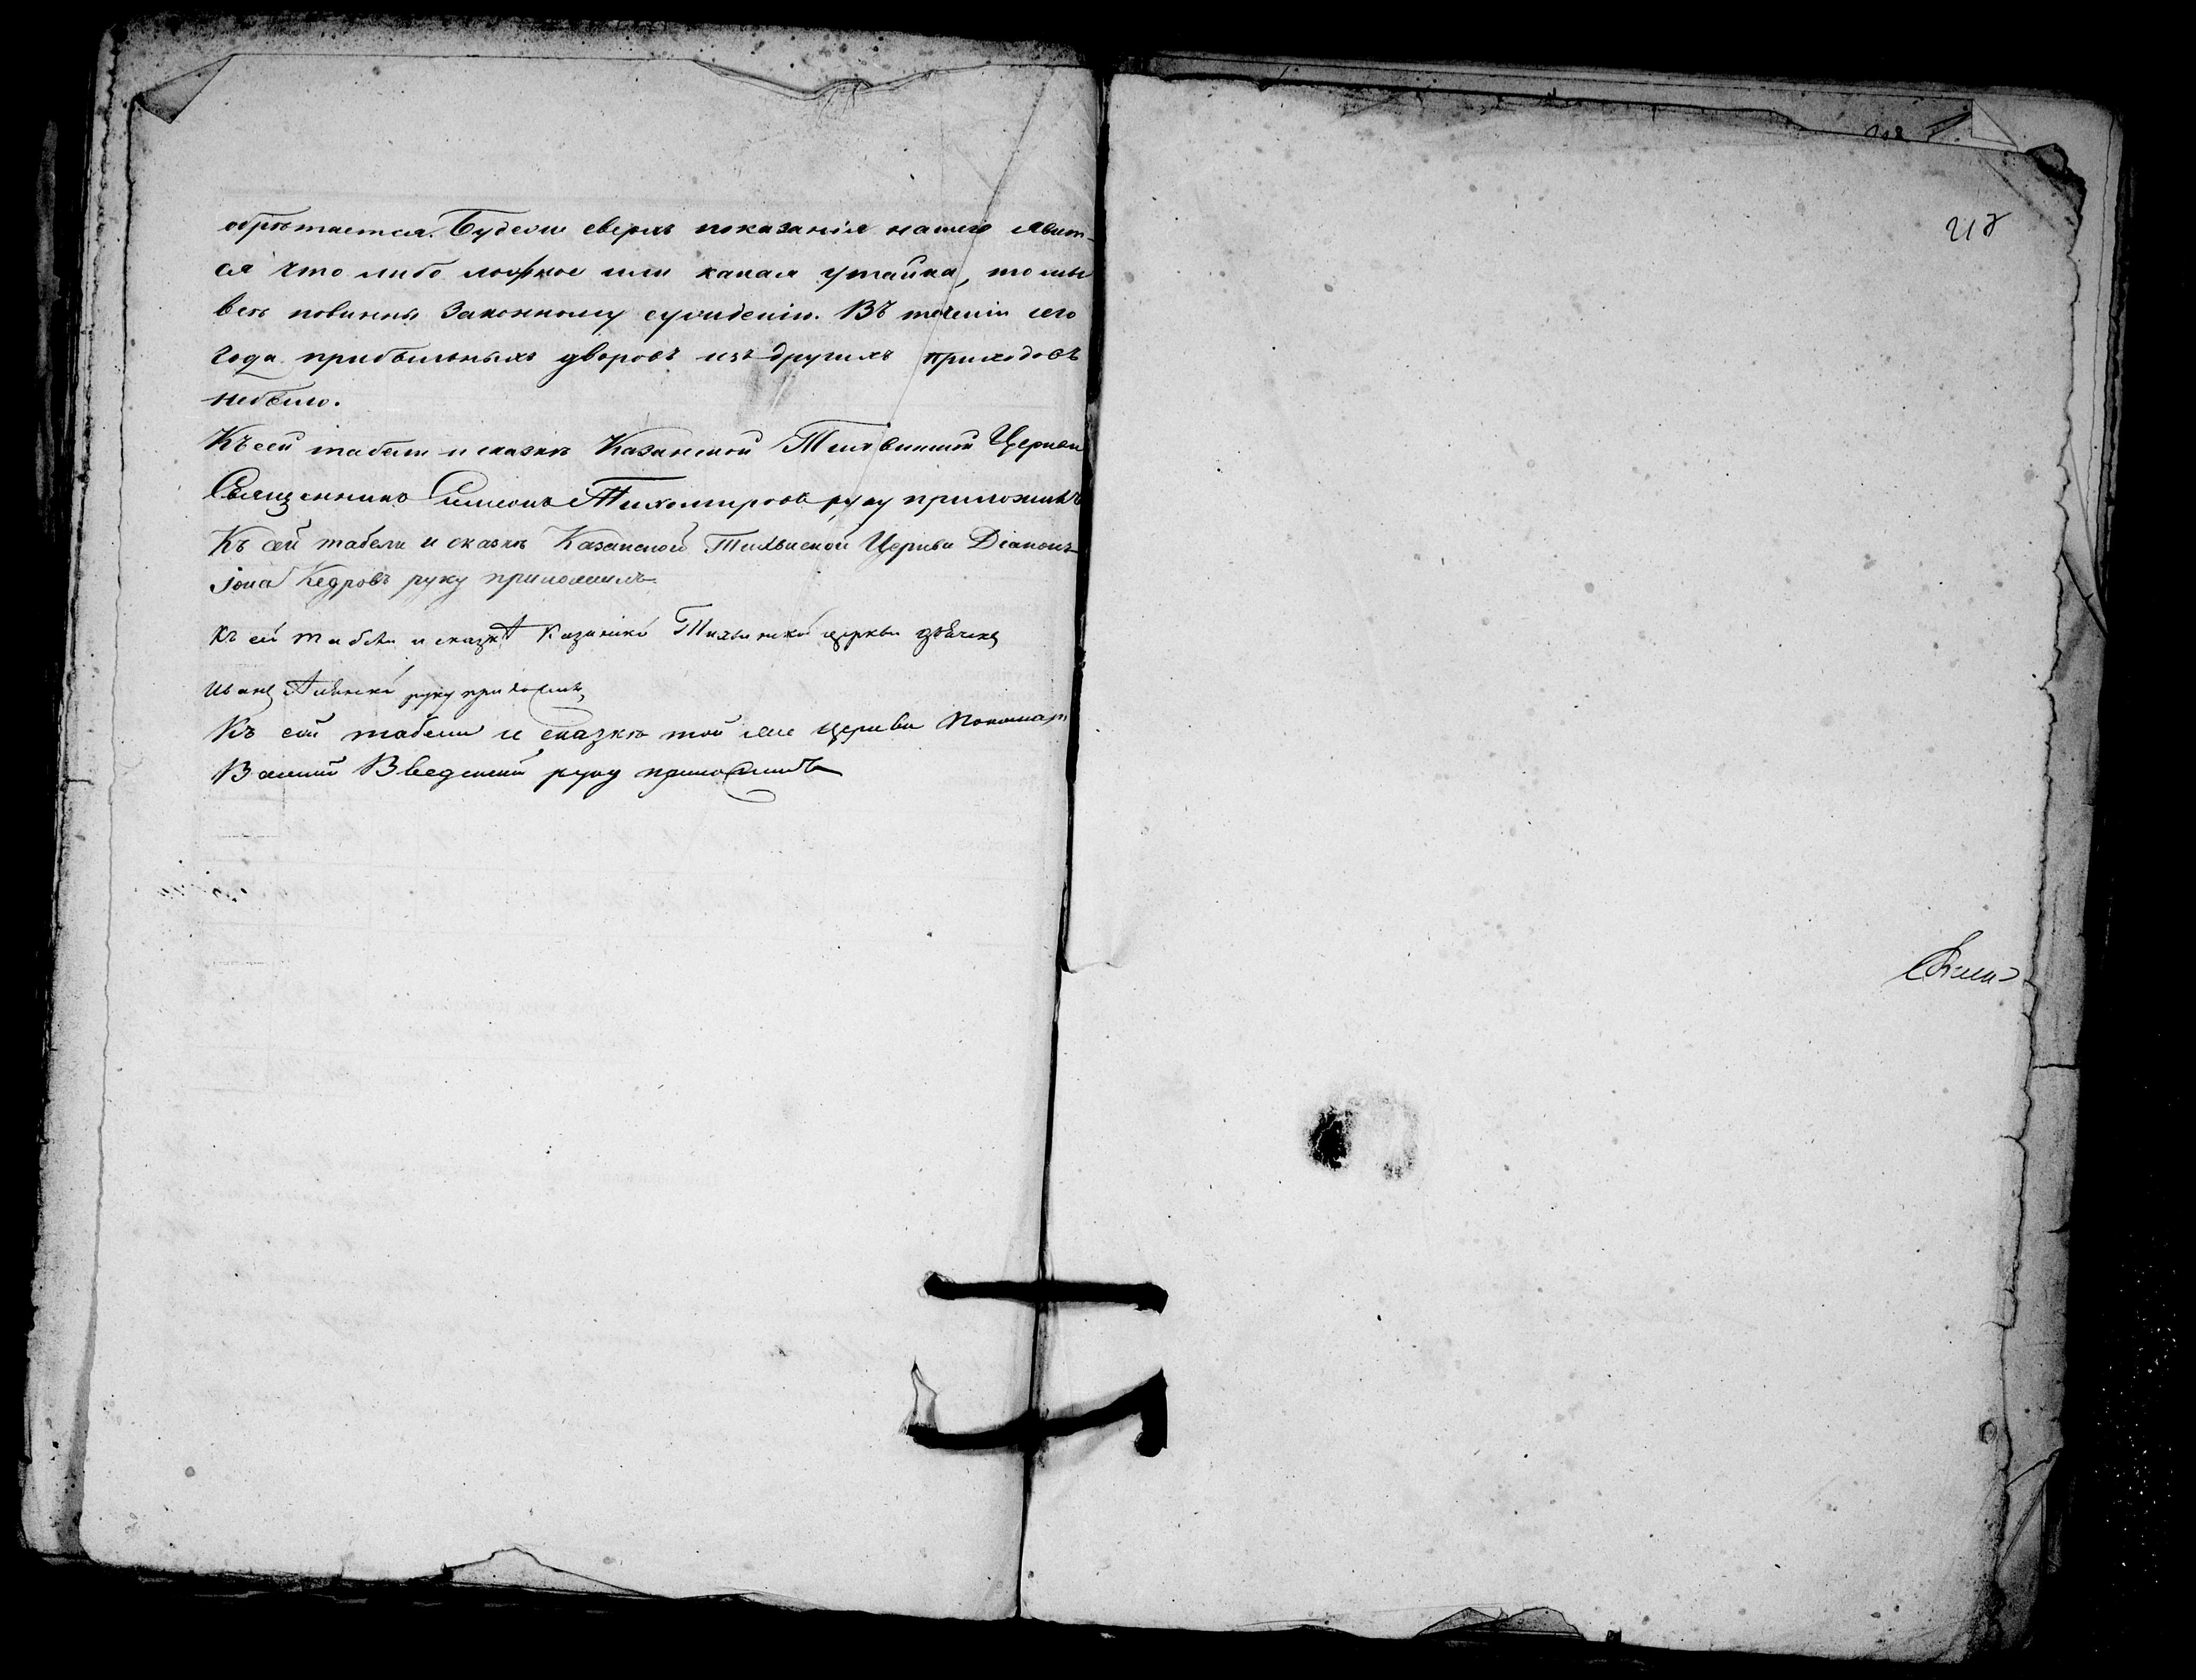 обрѣтается. Будели сверхъ показанія нашего явит-
ся что либо ложное или какая утайка, то мы
всѣ повинны законному сужденію. Въ теченіи сего
года прибыльныхъ дворовъ изъ другихъ приходовъ
небыло.
Къ сей табели и сказкѣ Казанской Тихвинской Церкви
Священникъ Симеонъ Тихомировъ руку приложилъ
Къ сей табели и сказкѣ Казанской Тихвинской Церкви Діаконъ
Іона Кедровъ руку приложилъ.
Къ сей табели и сказкѣ Казанской Тихвинской церкви дьячекъ
Иванъ руку приложилъ
Къ сей табели и сказкѣ той же церкви Пономарь
Василій Введенскій руку приложилъ
218